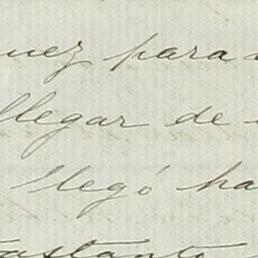 para
llegar de
llegó ha
bastante